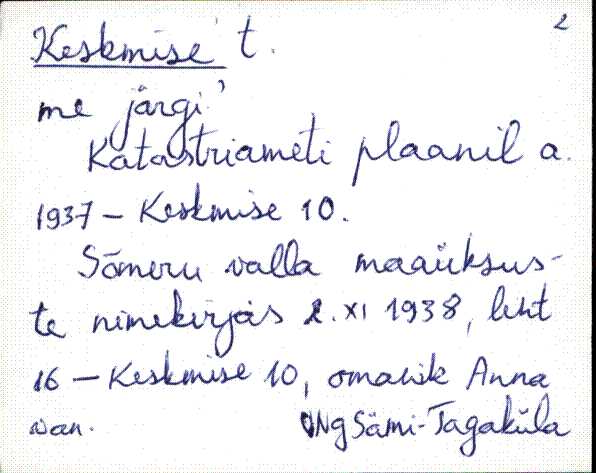 2
Keskmise t.
me järgi?
Katastriameti plaanil a.
1937 – Keskmise 10.
Sõmeru valla maaüksus-
te nimekirjas 2. XI 1938, leht
16 – Keskmise 10, omanik Anna
Sämi-Tagaküla